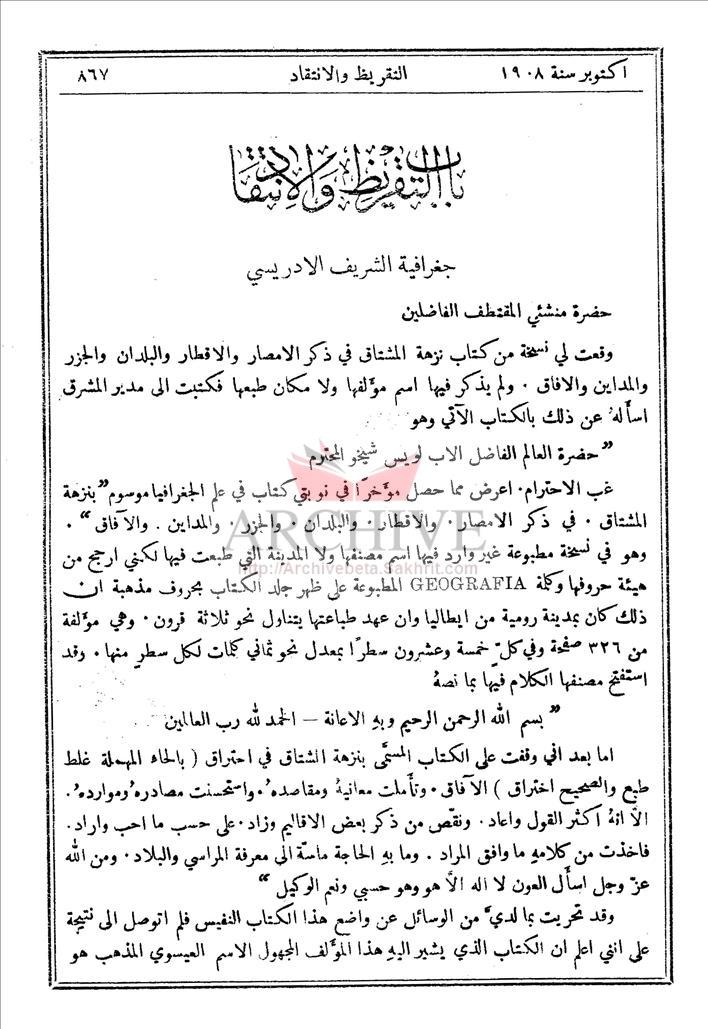 اكتوبر سنة ١٩٠٨ التقريظ والانتقاد ٨٦٧
باب التقريظ والانتقاد
جغرافية الشريف الادريسي
حضرة منشئي المقتطف الفاضلين
وقعت لي نسخة من كتاب نزهة المشتاق في ذكر الامصار والاقطار والبلدان والجزر
والمداين والافاق ٠ ولم يذكر فيها اسم مؤلفها ولا مكان طبعها فكتبت الى مدير المشرق
اسأَلهُ عن ذلك بالكتاب الآتي وهو
”حضرة العالم الفاضل الاب لويس شيخو المحترم
غب الاحترام٠ اعرض مما حصل مؤخرًا في نوبتي كتاب في علم الجغرافيا موسوم ”بنزهة
المشتاق ٠ في ذكر الامصار٠ والاقطار٠ والبلدان ٠ والجزر ٠ والمداين ٠ والآفاق “ ٠
وهو في نسخة مطبوعة غير وارد فيها اسم مصنفها ولا المدينة التي طبعت فيها لكنني ارجح من
هيئة حروفها وكلمة GEOGRAFIA المطبوعة على ظهر جلد الكتاب بحروف مذهبة ان
ذلك كان بمدينة رومية من ايطاليا وان عهد طباعتها يتناول نحو ثلاثة قرون ٠ وهي مؤلفة
من ٣٢٦ صفحة وفي كلّ خمسة وعشرون سطرًا بمعدل نحو ثماني كلمات لكل سطرٍ منها ٠ وقد
استفتح مصنفها الكلام فيها بما نصهُ
” بسم الله الرحمن الرحيم وبهِ الاعانة – الحمد لله رب العالمين
اما بعد اني وقفت على الكتاب المسمَّى بنزهة الشتاق في احتراق ( بالحاء المهملة غلط
طبع والصحيح اختراق ) الآفاق ٠ وتأملت معانيهُ ومقاصدهُ ٠واستحسنت مصادرهُ وموارده ُ٠
الاَّ انهُ اكثر القول واعاد ٠ ونقّص من ذكر بعض الاقاليم وزاد ٠ على حسب ما احب واراد٠
فاخذت من كلامهِ ما وافق المراد ٠ وما بهِ الحاجة ماسّة الى معرفة المراسي والبلاد ٠ ومن الله
عزّ وجل اسأَل العون لا اله الاَّ هو وهو حسبي ونعم الوكيل “
وقد تحريت بما لديَّ من الوسائل عن واضع هذا الكتاب النفيس فلم اتوصل الى نتيجة
على انني اعلم ان الكتاب الذي يشير اليهِ هذا المؤلف المجهول الاسم العيسوي المذهب هو
ARCHIVE
http://Archivebeta.Sakhrit.com